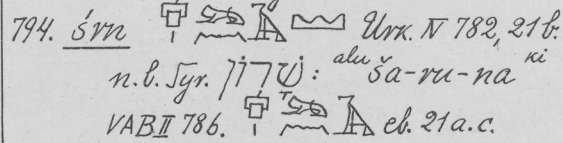 794. śrn Urk. IV 782, 21b.
n.b. Syr. שָׁרוֹן : alu ša-ru-na ki
VAB II 786. eb. 21 a.c.